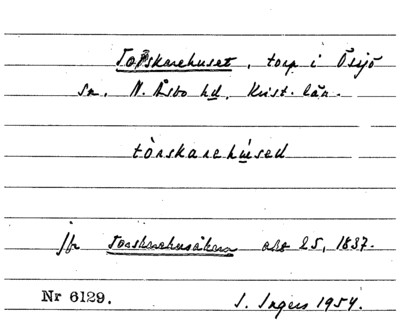 Torskarehuset, torp i Össjö
sn. N. Åsbo hd. Krist. län.
tòrskarehúsed
jfr Torskarehusåkern akt 25, 1837.
Nr 6129.
I. Ingers 1954.